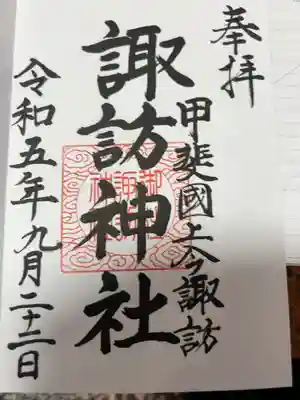 奉拝
甲斐國上今諏訪
諏訪神社
令和五年九月二十二日